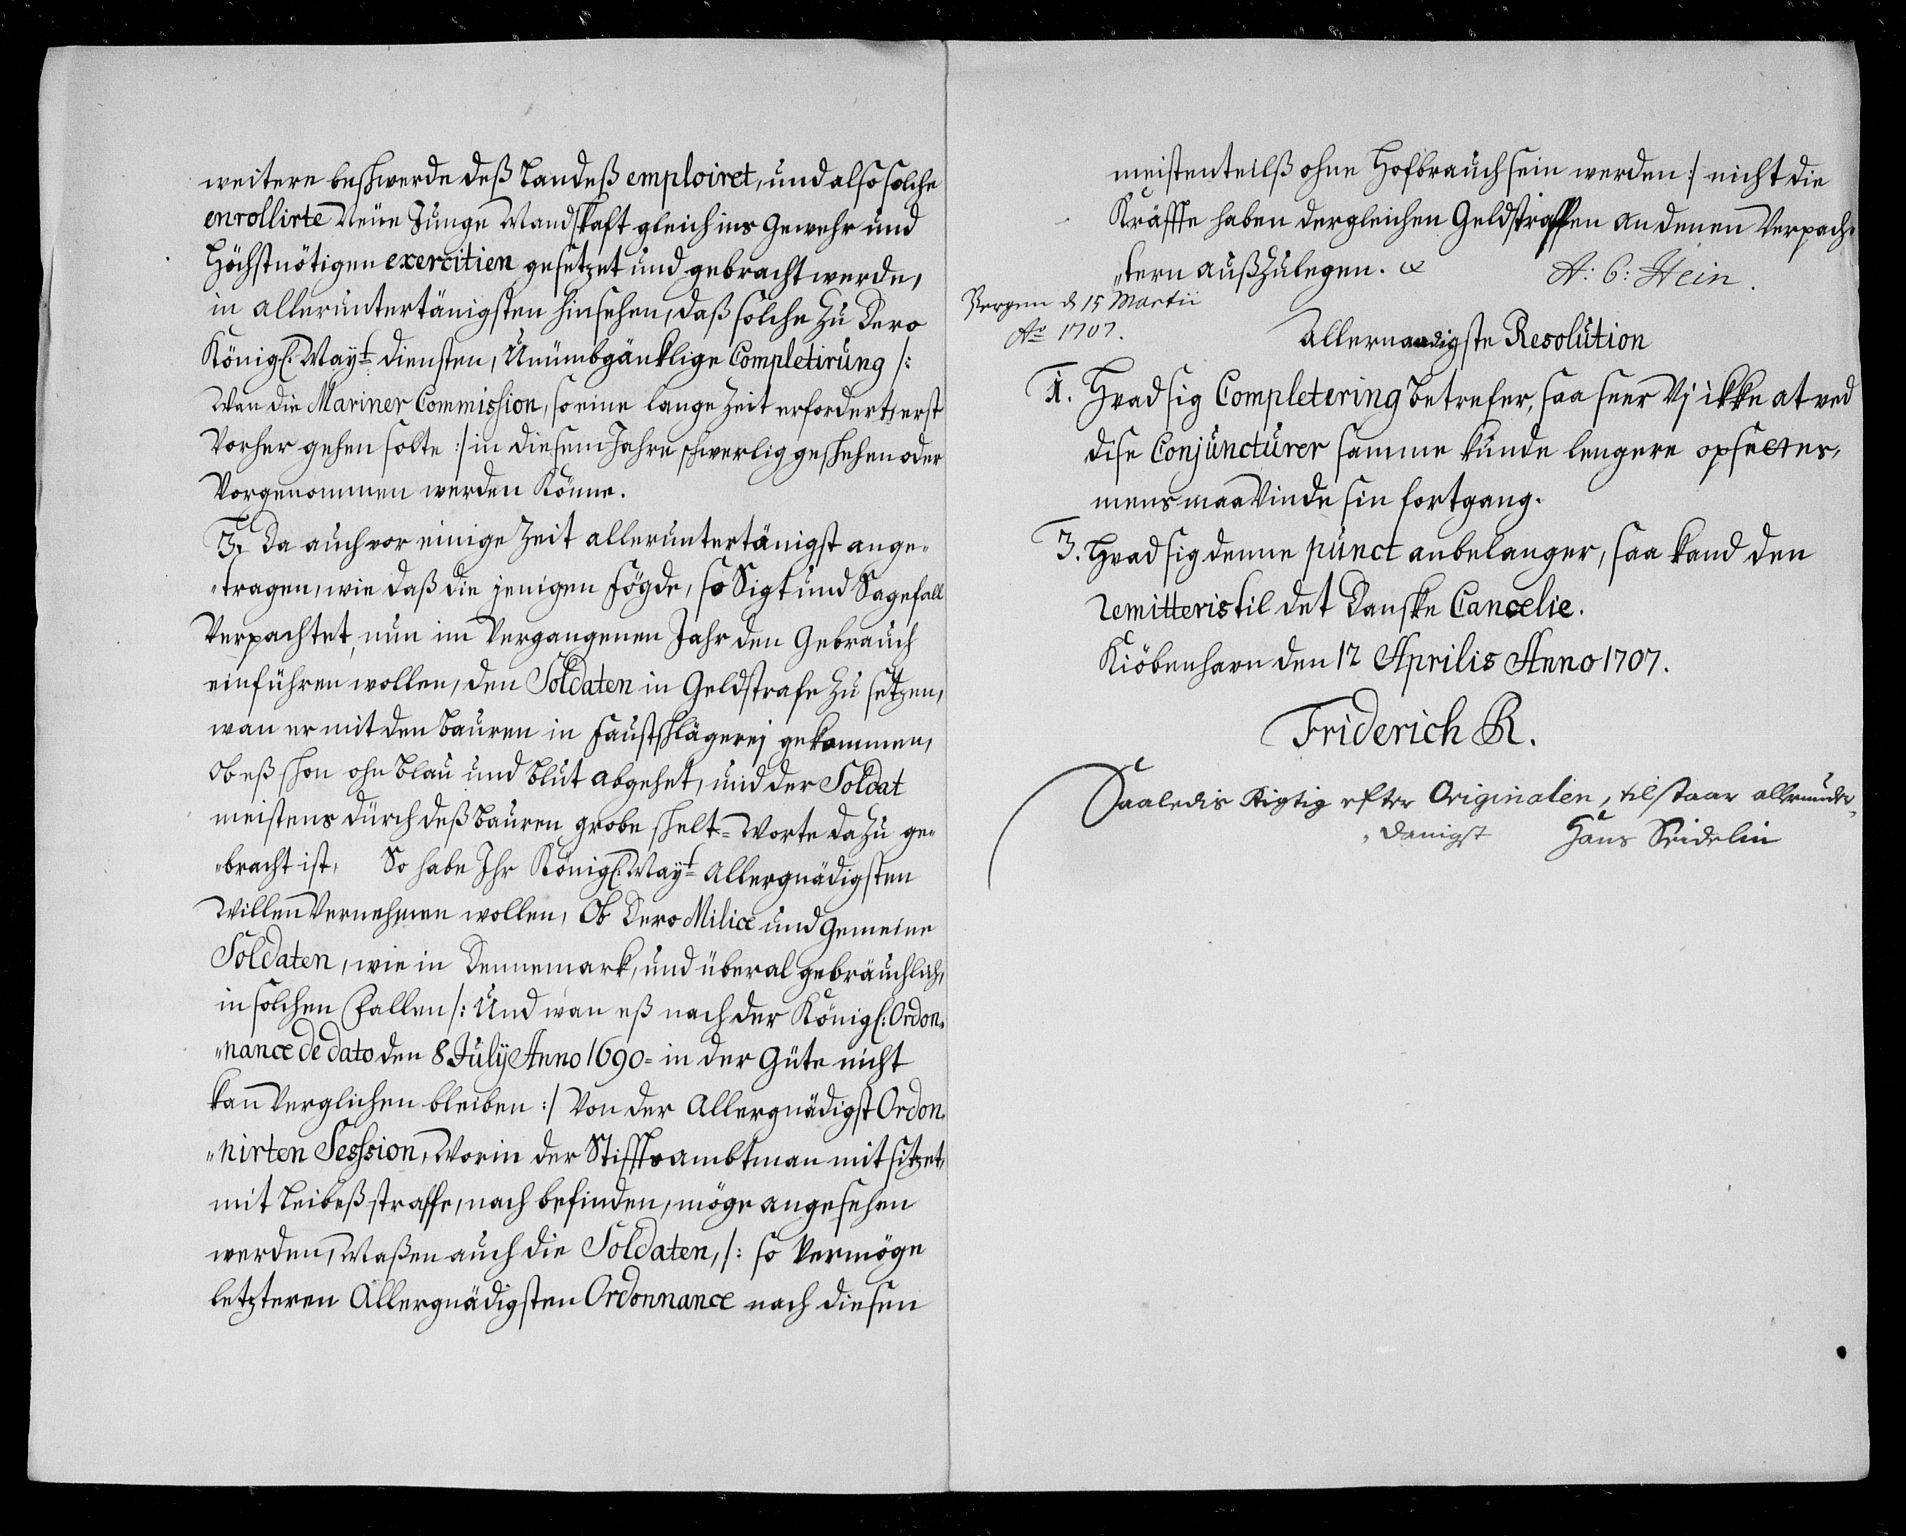 weitere beshwerde deß Landeß emploiret, und also solche
enrollirte Neüe Junge Mandskaft gleich ins Gewehr und
Höchstnötigen exercitien gesetzet und gebracht werde,
in alleruntertänigsten hinsehen, daß solche Zu Dero
Königl: Mayt: diensten, Unümbgänklige Completirung /:
Wan die Mariner Commission, so eine lange Zeit erfordert, erst
Vorher gehen solte :/ in diesem Jahre shwerlig geshehen oder
Vorgenommen werden Könne.
3, Da auch vor einige Zeit alleruntertänigst ange„
„tragen, wie daß die jenigen fögde, so Sigt und Sagefall
Verpachtet, nun im Vergangenen Jahr den Gebrauch
einführen wollen, den Soldaten in Geldstrafe Zu setzen,
wan er mit den Bauren in faustshlägerej gekommen,
ob eß shon ohn Blau und Blut abgehet, und der Soldat
meistens dürch deß Bauren grobe shelt= Worte dazu ge„
„bracht ist, So habe Ihr Königl: Mayt: Allergnädigsten
Willen Vernehmen wollen, Ob Dero Milice und gemeine
Soldaten, wie in Dennemark, und überal gebräuchlich,
in solchen fallen /: Und wan eß nach der Königl: Ordon„
„nance de dato den 8 Julij Anno 1690 = in der Güte nicht
kan Verglichen bleiben :/ Von der Allergnädigst Ordon„
„nirten Sesssion, Worin der Stifftsambtman mit sitzet,
mit Leibeß straffe, nach befinden, möge angesehen
werden, Maßen auch die Soldaten, /: so Vermöge
letzteren Allergnädigsten Ordonnance nach diesen
meistenteilß ohne Hofbrauch sein werden :/ nicht die
Kräffte haben dergleichen Geldstraffen an denen Verpach„
„tern außzulegen.
A: C: Hein.
Bergen d 15 Martii
Ao 1707.
Allernaadigste Resolution
1. Hvad sig Completering betrefer, saa seer Vj ikke at ved
dise Conjuncturer samme kunde lengere opsettes,
mens maa Vinde sin fortgang.
3. Hvad sig denne punct anbelanger, saa kand den
remitteris til det Danske Cancelie.
Kiöbenhavn den 12 Aprilis Anno 1707.
Friderich R.
Saaledis Rigtig efter Originalen, tilstaar allerunder„
„danigst Hans Seidelin